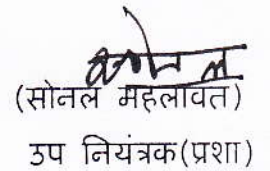 सोनल
(सोनल महलावत)
उप नियंत्रक(प्रशा)